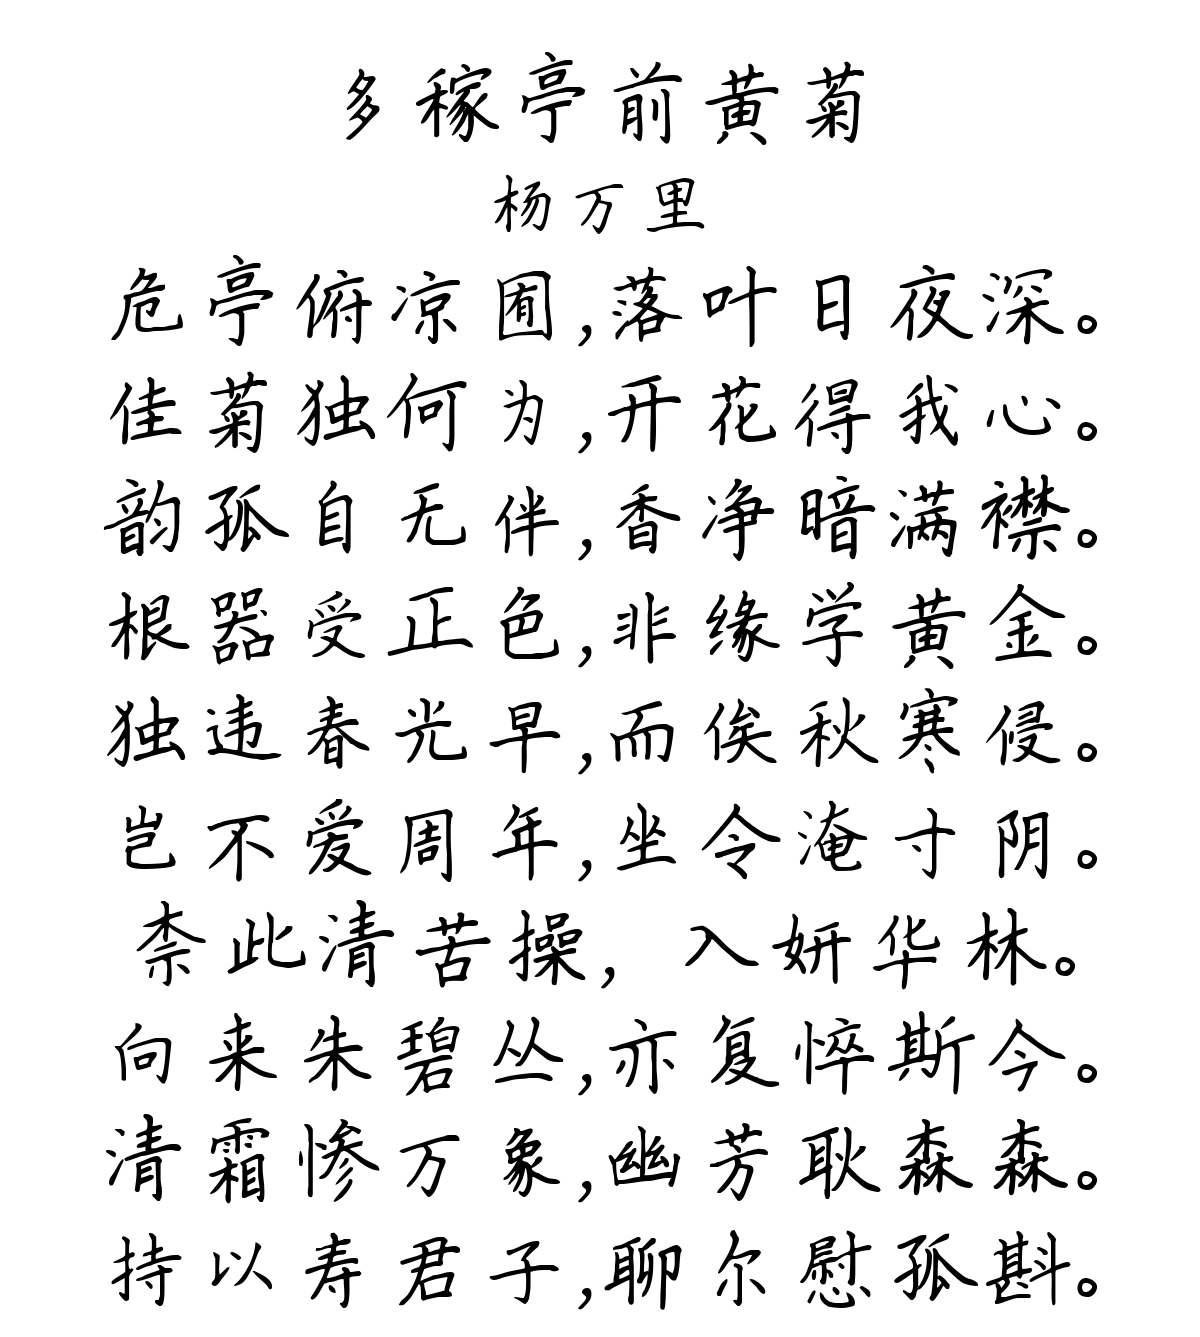 多稼亭前黄菊
杨万里
危亭俯凉囿,落叶日夜深。
佳菊独何为,开花得我心。
韵孤自无伴,香净暗满襟。
根器受正色,非缘学黄金。
独违春光早,而俟秋寒侵。
岂不爱周年,坐令淹寸阴。
柰此清苦操,入妍华林。
向来朱碧丛,亦复悴斯今。
清霜惨万象,幽芳耿森森。
持以寿君子,聊尔慰孤斟。